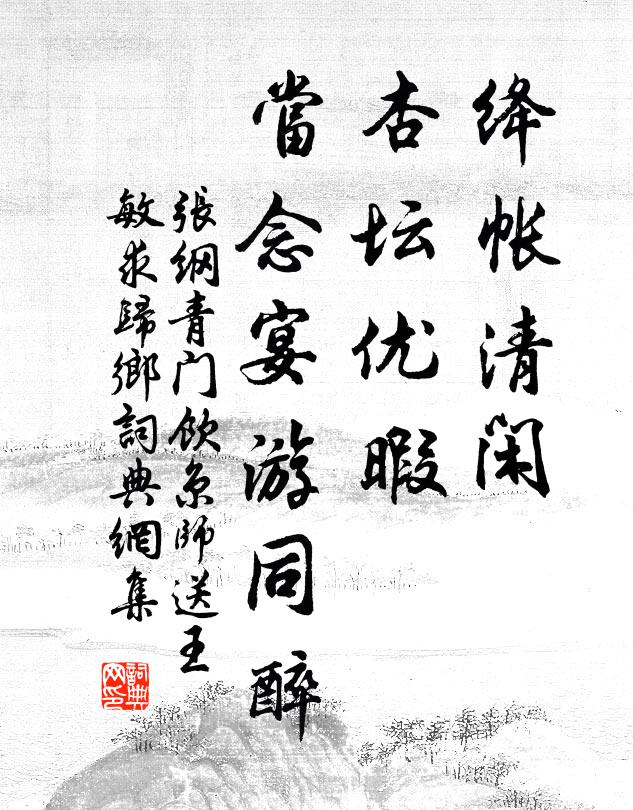 绛帐清闲
杏坛优暇
當念宴游同醉
張綱青门飲京師送王
敏求歸鄉詞典網集
詞典
网印